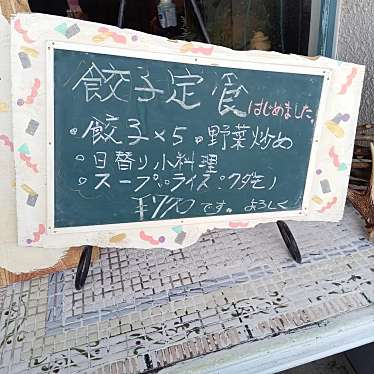 餃子定食はじめました。
・餃子×5 ・野菜炒め
・日替り小料理
・スープ ・ライス ・クダモノ
¥770です。よろしく